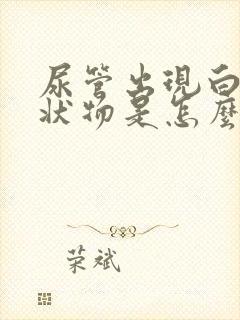 尿管出現白
狀物是怎麼
荣斌